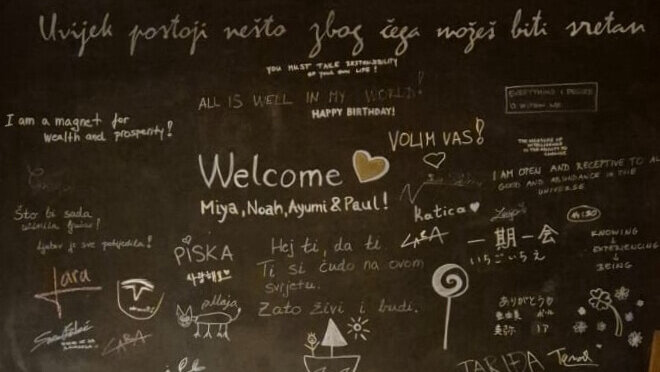 Uvijek postoji nešto zbog čega možeš biti sretan
YOU MUST TAKE RESPONSIBILITY
OF YOUR OWN LIFE!
ALL IS WELL IN MY WORLD!
HAPPY BIRTHDAY!
EVERYTHING I DESIRE
IS WITHIN ME
I am a magnet for
wealth and prosperity!
VOLIM VAS!
THE MEASURE OF
INTELLIGENCE
IS THE ABILITY TO
CHANGE
Welcome
Miya, Noah, Ayumi & Paul!
I AM OPEN AND RECEPTIVE TO
GOOD AND ABUNDANCE IN THE
UNIVERSE
Što bi sada
ljubav je sve pobijedila!
katica
LARA
一期一会
いちごいちえ
KNOWING
EXPERIENCING
BEING
PISKA
사랑해요
Hej ti, da ti.
Ti si čudo na ovom
svijetu.
Zato živi i budi.
Jara
LARA
ありがとう
TARIDA